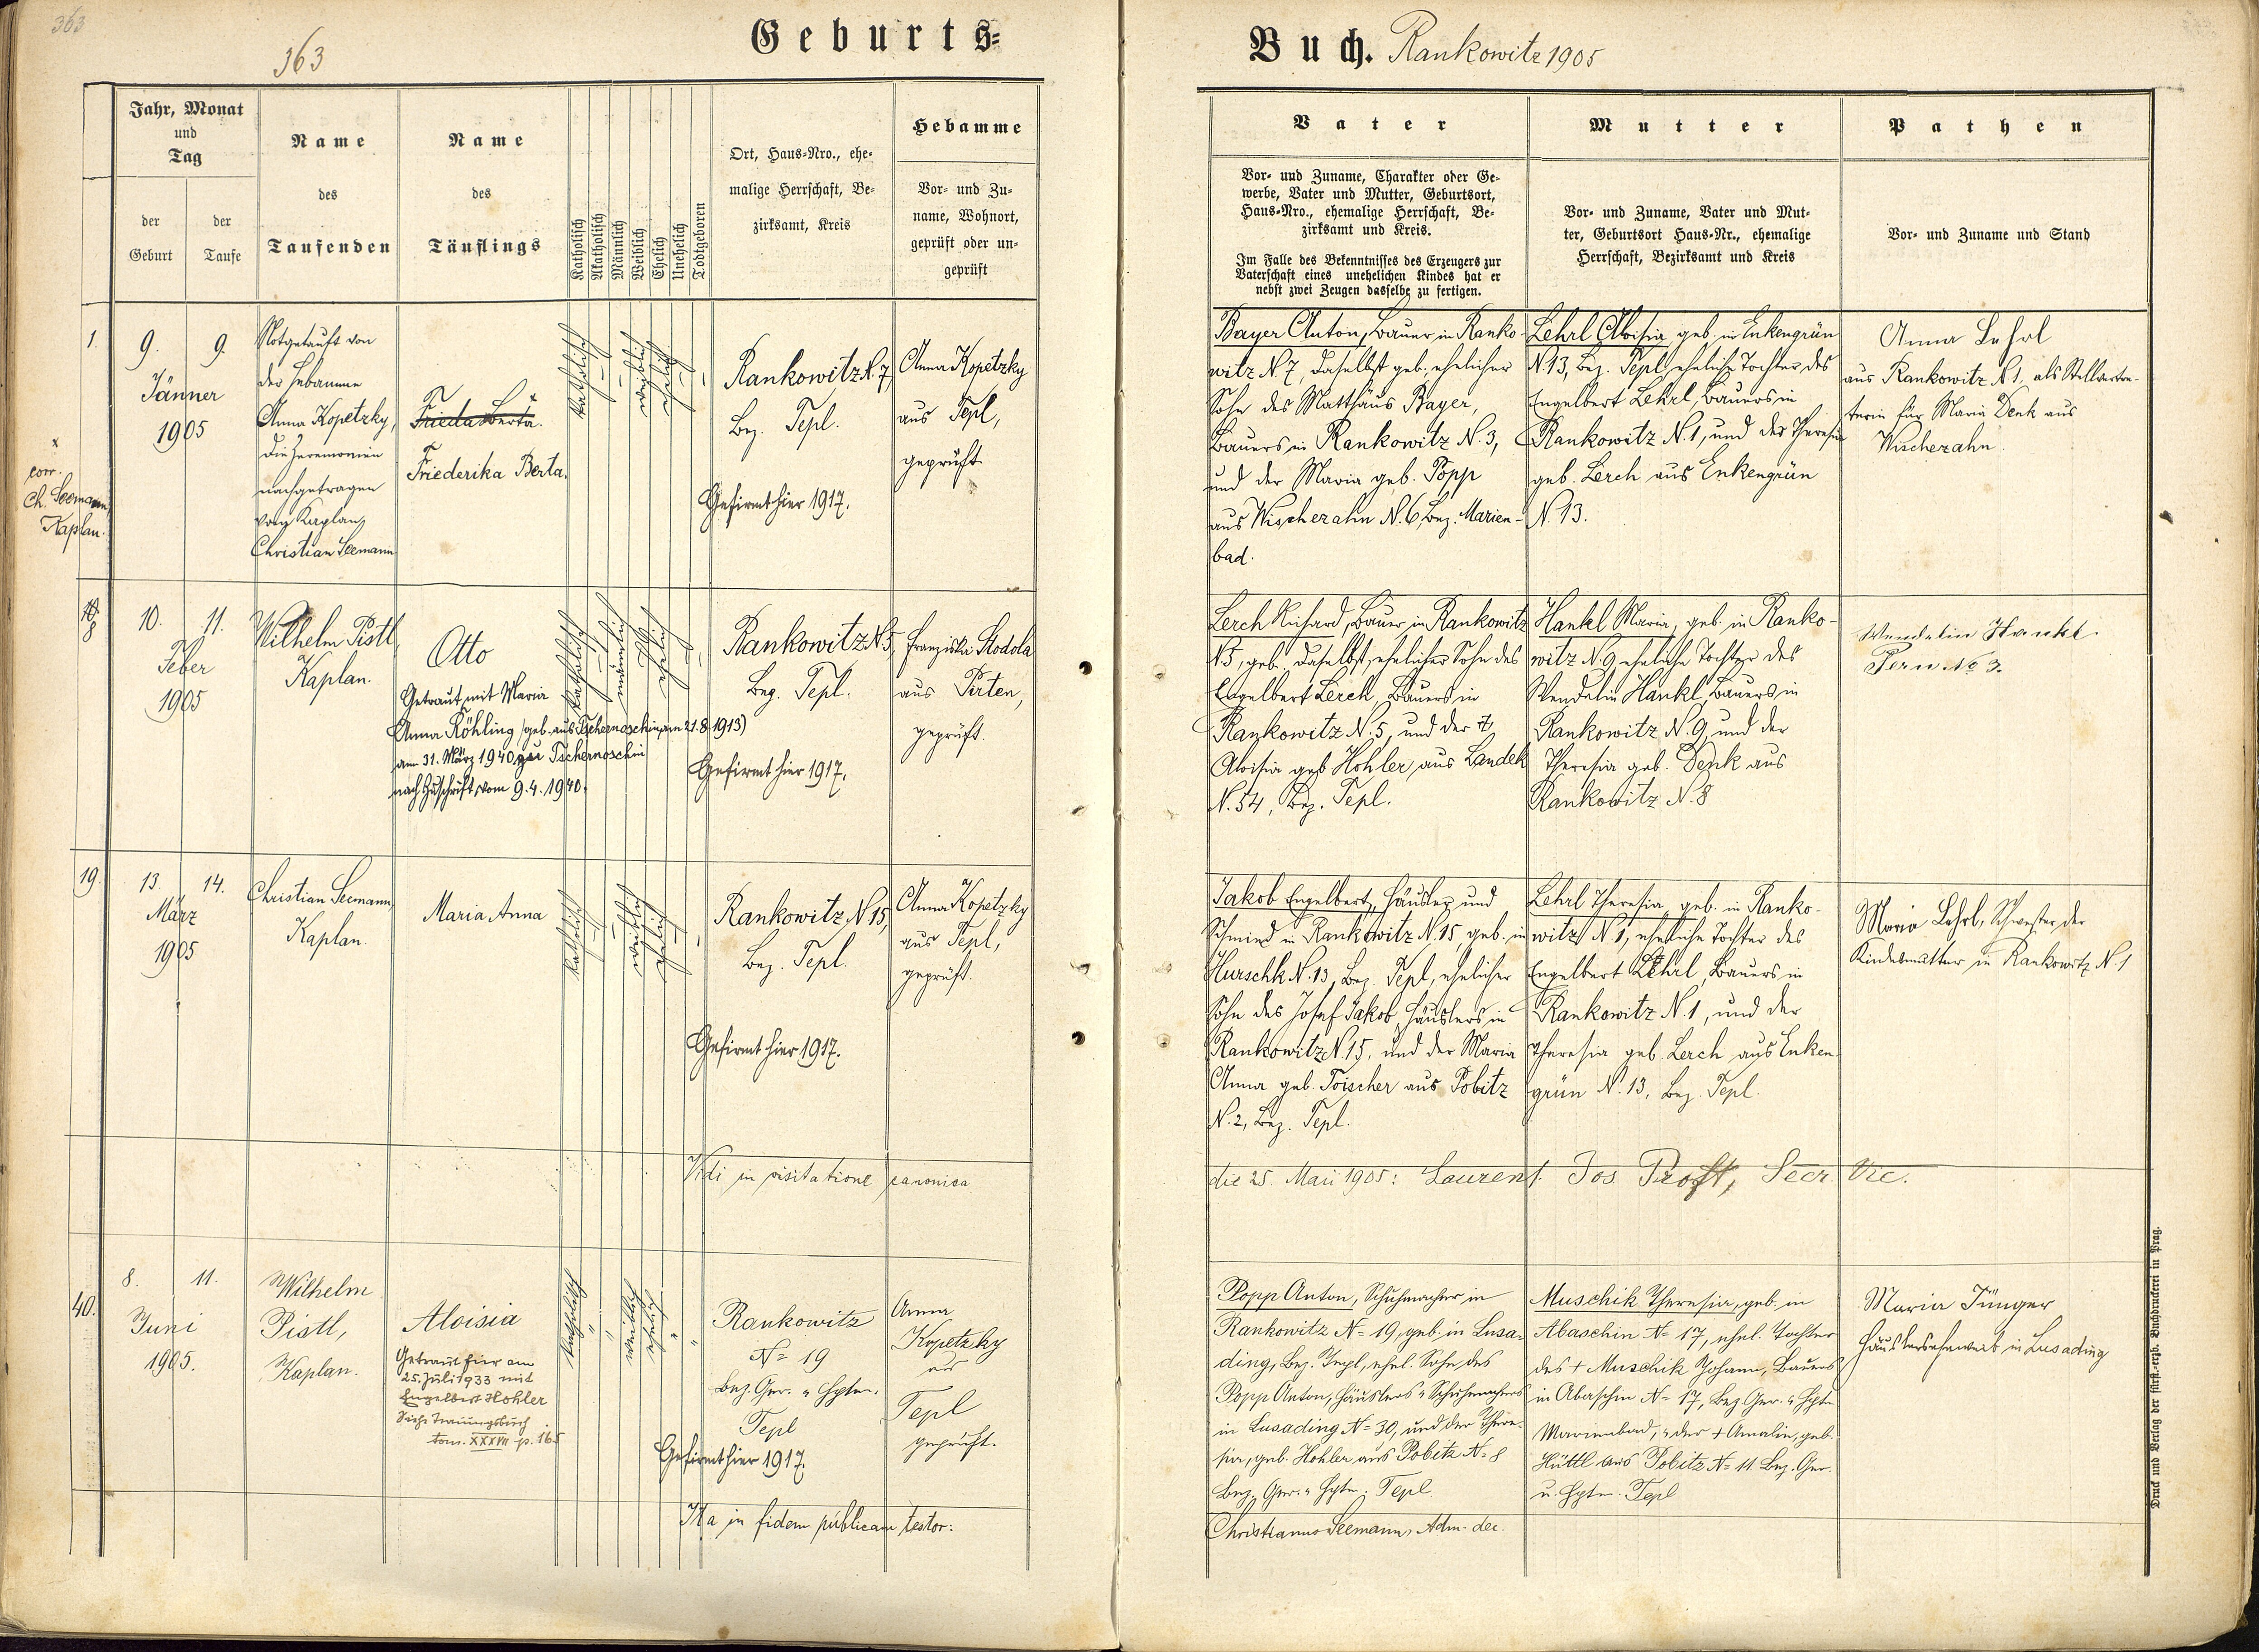 363
363
Geburts-
Buch. Rankowitz 1905
Jahr, Monat
und
Tag
der
Geburt
der
Taufe
Name
des
Taufenden
Name
des
Täuflings
Katholisch
Akatholisch
Männlich
Weiblich
Ehelich
Unehelich
Todtgeboren
Ort, Haus-Nro., ehe-
malige Herrschaft, Be-
zirksamt, Kreis
Hebamme
Vor- und Zu-
name, Wohnort,
geprüft oder un-
geprüft
Vater
Vor- und Zuname, Charakter oder Ge-
werbe, Vater und Mutter, Geburtsort,
Haus-Nro., ehemalige Herrschaft, Be-
zirksamt und Kreis.
Im Falle des Bekenntnisses des Erzeugers zur
Vaterschaft eines unehelichen Kindes hat er
nebst zwei Zeugen dasselbe zu fertigen.
Mutter
Vor- und Zuname, Vater und Mut-
ter, Geburtsort Haus-Nr., ehemalige
Herrschaft, Bezirksamt und Kreis
Pathen
Vor- und Zuname und Stand
1.
9. 9.
Jänner
1905
x
corr.
Ch. Seemann,
Kaplan.
Notgetauft von
der Hebamme
Anna Kopetzky,
die Zeremonien
nachgetragen
vom Kaplan
Christian Seemann
x
Frieda Berta.
Friederika Berta.
katholisch
weiblich
ehelich
Rankowitz N. 7,
Bez. Tepl.
Gefirmt hier 1917.
Anna Kopetzky
aus Tepl,
geprüft.
Bayer Anton, Bauer in Ranko-
witz N. 7, daselbst geb., ehelicher
Sohn des Matthäus Bayer,
Bauers in Rankowitz N. 3,
und der Maria geb. Popp
aus Wischezahn N. 6, Bez. Marien-
bad.
Lehrl Aloisia, geb. in Enkengrün
N. 13, Bez. Tepl, eheliche Tochter des
Engelbert Lehrl, Bauers in
Rankowitz N. 1, und der Theresia
geb. Lerch aus Enkengrün
N. 13.
Anna Lehrl
aus Rankowitz N. 1, als Stellvertre-
terin für Maria Denk aus
Wischezahn.
8
10. 11.
Feber
1905
Wilhelm Pistl,
Kaplan.
Otto
Getraut mit Maria
Anna Röhling (geb. aus Tschernoschin, am 21.8.1913)
am 31. März 1940 zu Tschernoschin
nach Zuschrift vom 9.4.1940.
katholisch
männlich
ehelich
Rankowitz N. 5,
Bez. Tepl.
Gefirmt hier 1917.
Franziska Stodola
aus Pirten,
geprüft.
Lerch Richard, Bauer in Rankowitz
N. 5, geb. daselbst, ehelicher Sohn des
Engelbert Lerch, Bauers in
Rankowitz N. 5, und der †
Aloisia geb. Hohler aus Landek
N. 54, Bez. Tepl.
Hankl Maria, geb. in Ranko-
witz N. 9, eheliche Tochter des
Wendelin Hankl, Bauers in
Rankowitz N. 9, und der
Theresia geb. Denk aus
Rankowitz N. 8
Wendelin Hankl
Pern No 3.
19.
13. 14.
März
1905
Christian Seemann,
Kaplan.
Maria Anna
katholisch
weiblich
ehelich
Rankowitz N. 15,
Bez. Tepl.
Gefirmt hier 1917.
Anna Kopetzky
aus Tepl,
geprüft.
Jakob Engelbert, Häusler und
Schmied in Rankowitz N. 15, geb. in
Hurschk N. 13, Bez. Tepl, ehelicher
Sohn des Josef Jakob, Häuslers in
Rankowitz N. 15, und der Maria
Anna geb. Toischer aus Pobitz
N. 2, Bez. Tepl.
Lehrl Theresia, geb. in Ranko-
witz N. 1, eheliche Tochter des
Engelbert Lehrl, Bauers in
Rankowitz N. 1, und der
Theresia geb. Lerch aus Enken-
grün N. 13, Bez. Tepl.
Maria Lehrl, Schwester der
Kindesmutter in Rankowitz N. 1
Vidi in visitatione canonica
die 25. Maii 1905: Laurent. Jos. Proft, Secr. Vic.
40.
8. 11.
Juni
1905.
Wilhelm
Pistl,
Kaplan.
Aloisia
Getraut hier am
25. Juli 1933 mit
Engelbert Hohler
Siehe Trauungsbuch
tom. XXXVII p. 165
katholisch
weiblich
ehelich
Rankowitz
N= 19
Bez. Ger. u. Hptm.
Tepl
Gefirmt hier 1917.
Anna
Kopetzky
aus
Tepl
geprüft.
Popp Anton, Schuhmacher in
Rankowitz N= 19, geb. in Lusa-
ding, Bez. Tepl, ehel. Sohn des
Popp Anton, Häuslers u. Schuhmachers
in Lusading N= 30, und der There-
sia, geb. Hohler aus Pobitz N= 8
Bez. Ger. u. Hptm. Tepl
Muschik Theresia, geb. in
Abaschin N= 17, ehel. Tochter
des † Muschik Johann, Bauers
in Abaschin N= 17, Bez. Ger. u. Hptm
Marienbad, u. der † Amalia, geb.
Hüttl aus Pobitz N= 11 Bez. Ger.
u. Hptm. Tepl
Maria Jünger
Häuslersehweib in Lusading
Ita in fidem publicam testor:
Christianus Seemann, Adm. dec.
Druck und Verlag der fürst.-erzb. Buchdruckerei in Prag.